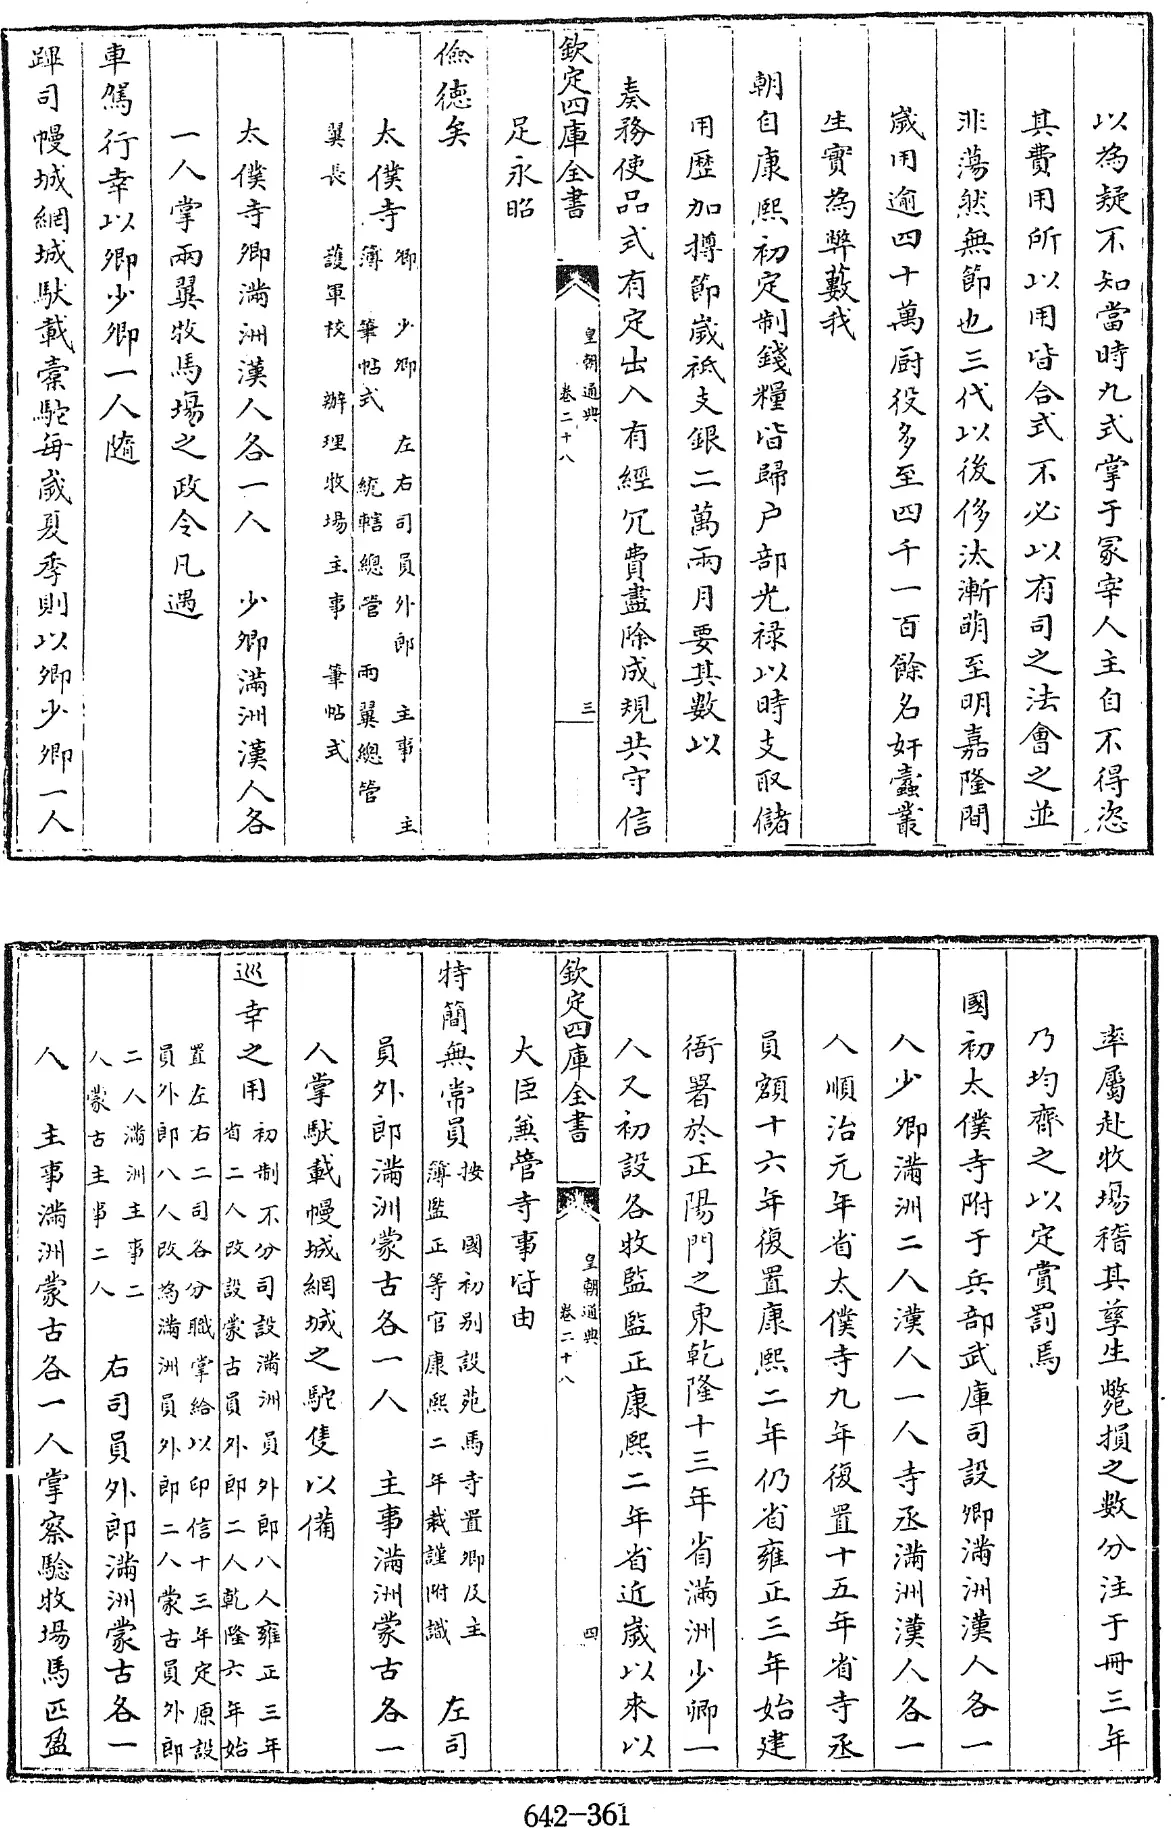 以為疑不知當時九式掌于冢宰人主自不得恣
其費用所以用皆合式不必以有司之法會之並
非蕩然無節也三代以後侈汰漸萌至明嘉隆間
歲用逾四十萬厨役多至四千一百餘名奸蠹叢
生實為弊藪我
朝自康熙初定制錢糧皆歸户部光禄以時支取儲
用歴加撙節歲祗支銀二萬兩月要其數以
奏務使品式有定出入有經冗費盡除成規共守信
欽定四庫全書
皇朝通典
卷二十八
三
足永昭
儉德矣
太僕寺卿 少卿 左右司員外郎 主事 主
簿 筆帖式 統轄總管 兩翼總管
翼長 護軍校 辦理牧場主事 筆帖式
太僕寺卿滿洲漢人各一人 少卿滿洲漢人各
一人掌兩翼牧馬場之政令凡遇
車駕行幸以卿少卿一人隨
蹕司幔城網城馱載橐駝每歲夏季則以卿少卿一人
率屬赴牧場稽其孳生斃損之數分注于冊三年
乃均齊之以定賞罰焉
國初太僕寺附于兵部武庫司設卿滿洲漢人各一
人少卿滿洲二人漢人一人寺丞滿洲漢人各一
人順治元年省太僕寺九年復置十五年省寺丞
員額十六年復置康熙二年仍省雍正三年始建
衙署於正陽門之東乾隆十三年省滿洲少卿一
人又初設各牧監監正康熙二年省近歲以來以
欽定四庫全書
皇朝通典
卷二十八
四
大臣兼管寺事皆由
特簡無常員按 國初别設苑馬寺置卿及主
簿監正等官康熙二年裁謹附識 左司
員外郎滿洲蒙古各一人 主事滿洲蒙古各一
人掌馱載幔城網城之駝隻以備
巡幸之用初制不分司設滿洲員外郎八人雍正三年
省二人改設蒙古員外郎二人乾隆六年始
置左右二司各分職掌給以印信十三年定原設
員外郎八人改為滿洲員外郎二人蒙古員外郎
二人滿洲主事二
人蒙古主事二人 右司員外郎滿洲蒙古各一
人 主事滿洲蒙古各一人掌察騐牧場馬匹盈
642-361